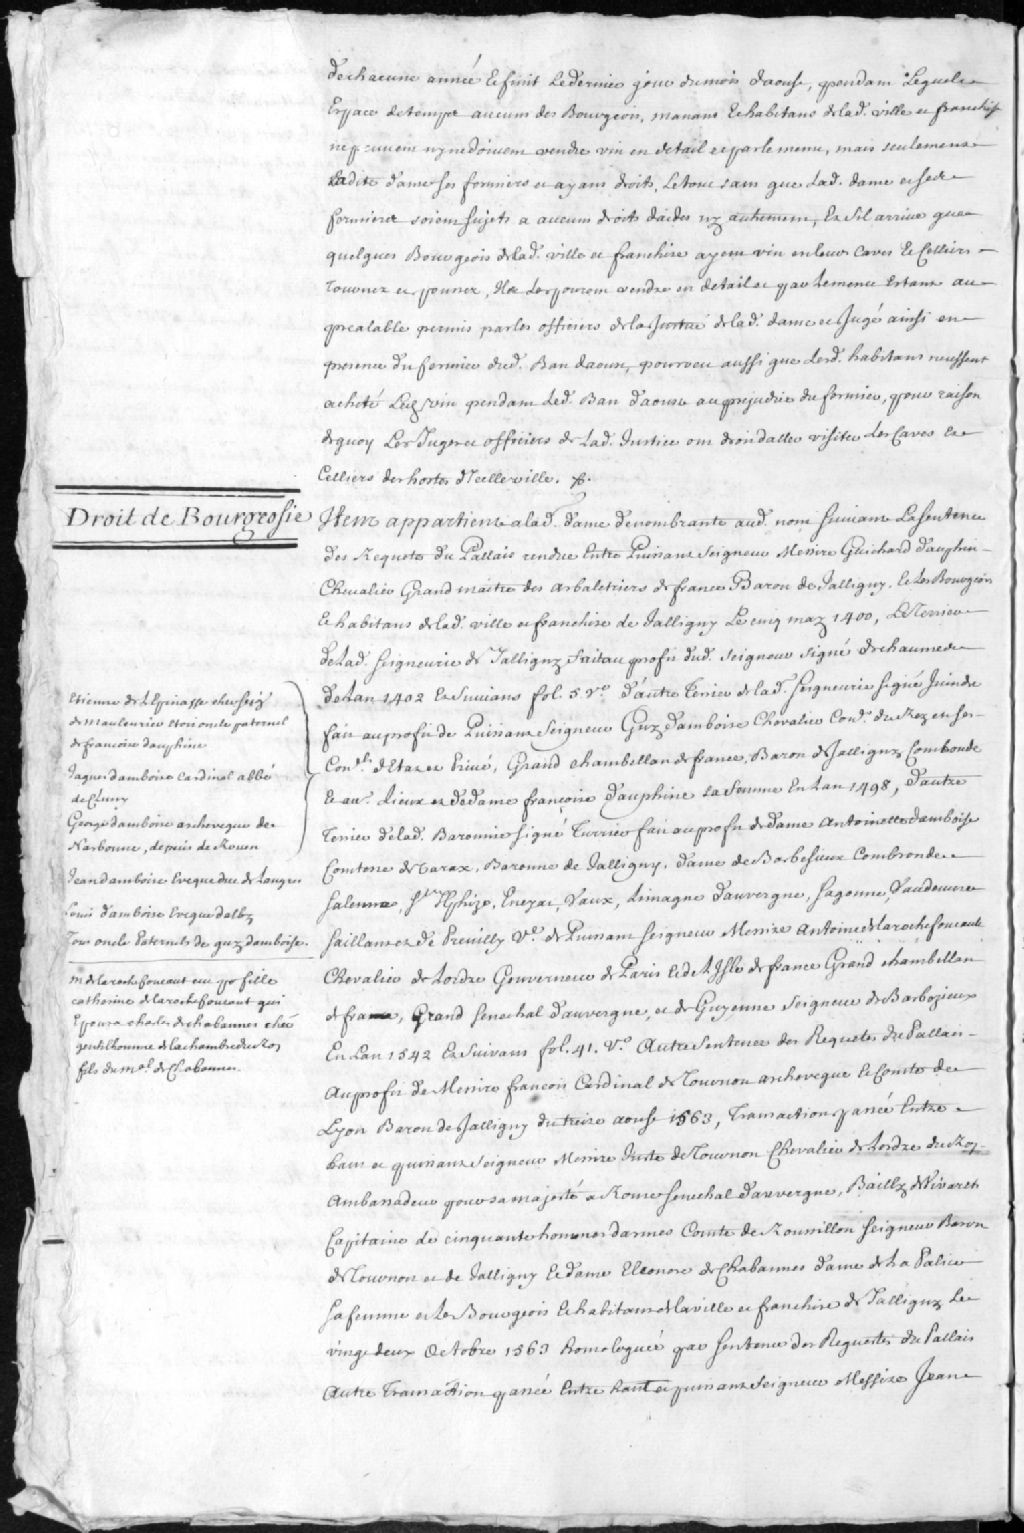 de chacune année et finit le dernier jour du mois daoust, pendant lequel
Espace de temps aucuns des Bourgeois, manans et habitans de lad. ville et franchise
ne peuvent ny ne doivent vendre vin en detail et par le menu, mais seulement
Ladite dame ses fermiers et ayans droits, Le tout sans que lad. dame et ses
fermiers soient sujets a aucuns droits daides ny autrement, Et sil arrive que
quelques Bourgeois de lad. ville et franchise ayent vin en leurs Caves et Celliers
Tournez et poussez, Ils les pouront vendre en detail et par le menu Estant au
prealable permis par les officiers de la Justice de lad. dame et Jugé ainsi en
presence du fermier dud. Ban daoust, pourveu aussi que lesd. habitans neussent
acheté led. vin pendant led. Ban daoust au prejudice du fermier, pour raison
de quoy Les Juges et officiers de Lad. Justice ont droit daller visiter Les Caves et
Celliers des hostes d'Icelle ville. &.
Droit de Bourgeosie
Item appartient a lad. dame denombrante aud. nom Suivant La Sentence
des Requetes du Pallais rendue Entre Puissant Seigneur Messire Guichard dauphin
Chevalier Grand maitre des arbaletriers de france Baron de Jalligny. Et Les Bourgeois
Et habitans de lad. ville et franchise de Jalligny Le cinq may 1400, Le Terrier
de Lad. Seigneurie de Jalligny Fait au profit dud. Seigneur Signé dechaumes
de Lan 1402 Et Suivans fol. 5 v.º d'autre Terrier de lad. Seigneurie signé
fait au profit de Puissant Seigneur Guy damboise Chevalier Con.er du Roy en ses
Con.ls dEtat et Privé, Grand chambellan de france, Baron de Jalligny Combronde
Et au.s Lieux et de dame françoise dauphine sa femme En Lan 1498, d'autre
Terrier de lad. Baronnie signé Turrier fait au profit de dame Antoinette damboise
Comtesse de Baronne de Jalligny, dame de Barbesieux Combronde
Vaux, Limagne dauvergne, Sagonne, Vandeuvre
Saillans et de Preuilly V.e de Puissant Seigneur Messire Antoine de la rochefoucault
Chevalier de Lordre Gouverneur de Paris et de L Isle de france Grand chambellan
de france, Grand Senechal dauvergne, et de Guyenne Seigneur de Barbezieux
En Lan 1542 Et Suivans fol. 41. V.º Autre Sentence des Requetes du Pallais
Au profit de Messire francois Cardinal de Tournon archeveque et Comte de
Lyon Baron de Jalligny du treize aoust 1563, Transaction passée Entre
haut et puissant Seigneur Messire Juste de Tournon Chevalier de Lordre du Roy
Ambassadeur pour sa majesté a Rome Senechal dauvergne, Bailly de Vivarets
Capitaine de cinquante hommes darmes Comte de Roussillon Seigneur Baron
de Tournon et de Jalligny et dame Eleonore de Chabannes dame de La Palice
Sa femme et Les Bourgeois et habitans de la ville et franchise de Jalligny Le
vingt deux Octobre 1563 Homologuée par Sentence des Requestes du Pallais
Autre Transaction passée Entre haut et puissant Seigneur Messire Jean
Etienne de LEpinasse chev.
de Mauleurier etoit oncle paternel
de francoise dauphine
Jaques damboise cardinal abbé
de Cluny
George damboise archeveque de
Narbonne, depuis de Rouen
Jean damboise Eveque duc de Langres
Louis damboise Eveque dalby
Tous oncles Paternels de guy damboise.
m de la rochefoucaut eut po.r fille
catherine de la rochefoucaut qui
Epousa charles de chabannes che.r
gentilhomme de la chambre du Roy
fils du m.al de Chabannes.